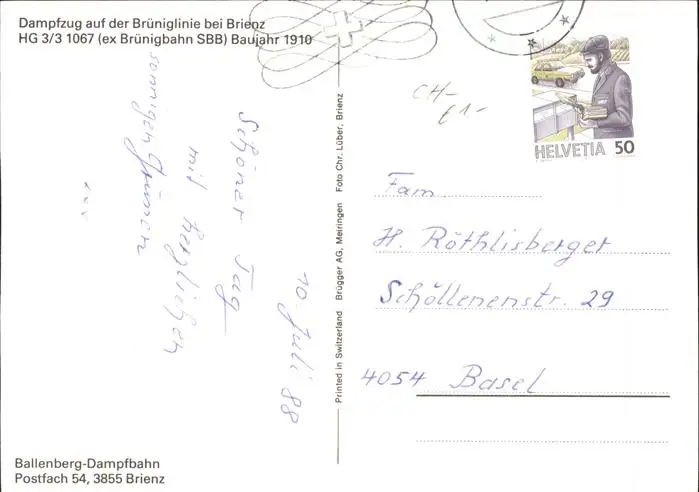 Dampfzug auf der Brüniglinie bei Brienz
HG 3/3 1067 (ex Brünigbahn SBB) Baujahr 1910
10. Juli 88
Schöner Tag
mit herzlichen
sonnigen Grüssen
Ballenberg-Dampfbahn
Postfach 54, 3855 Brienz
Printed in Switzerland Brügger AG, Meiringen Foto Chr. Lüber, Brienz
CH-
£1-
HELVETIA 50
Fam
H. Röthlisberger
Schöllenenstr. 29
4054 Basel